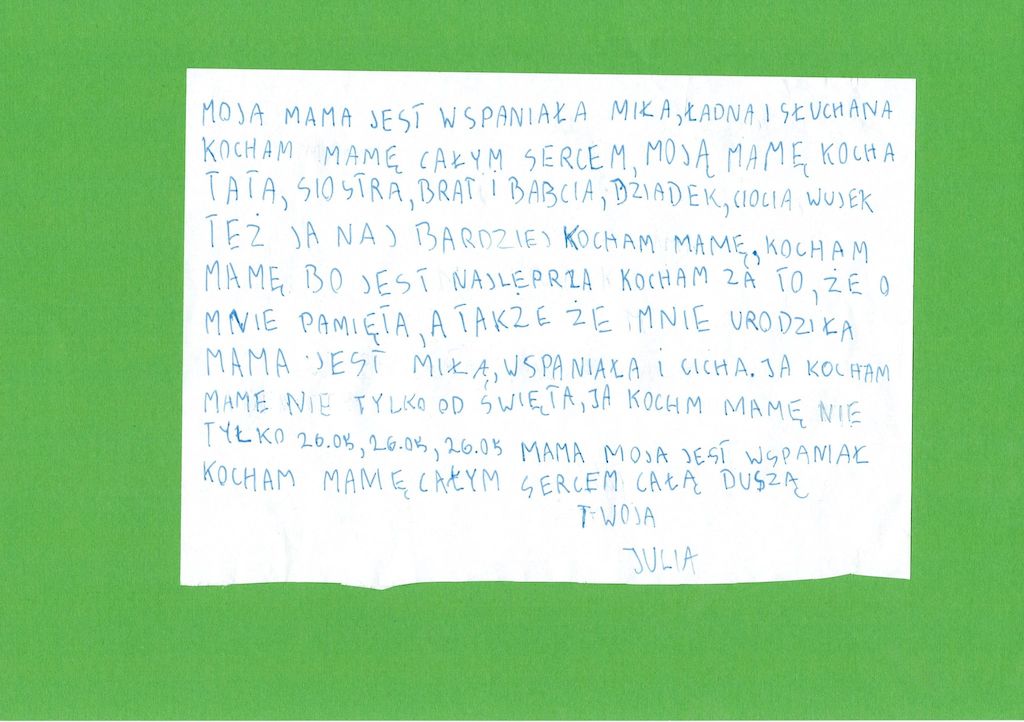 MOJA MAMA JEST WSPANIAŁA MIŁA, ŁADNA I SŁUCHANA
KOCHAM MAMĘ CAŁYM SERCEM, MOJĄ MAMĘ KOCHA
TATA, SIOSTRA, BRAT I BABCIA, DZIADEK, CIOCIA WUJEK
TEŻ JA NAJ BARDZIEJ KOCHAM MAMĘ, KOCHAM
MAMĘ BO JEST NAJLEPRZA KOCHAM ZA TO, ŻE O
MNIE PAMIĘTA, A TAKŻE ŻE MNIE URODZIŁA
MAMA JEST MIŁĄ, WSPANIAŁA I CICHA. JA KOCHAM
MAME NIE TYLKO OD ŚWIĘTA, JA KOCHM MAMĘ NIE
TYŁKO 26.05, 26.05, 26.05 MAMA MOJA JEST WSPANIAŁ
KOCHAM MAMĘ CAŁYM SERCEM CAŁĄ DUSZĄ
TWOJA
JULIA